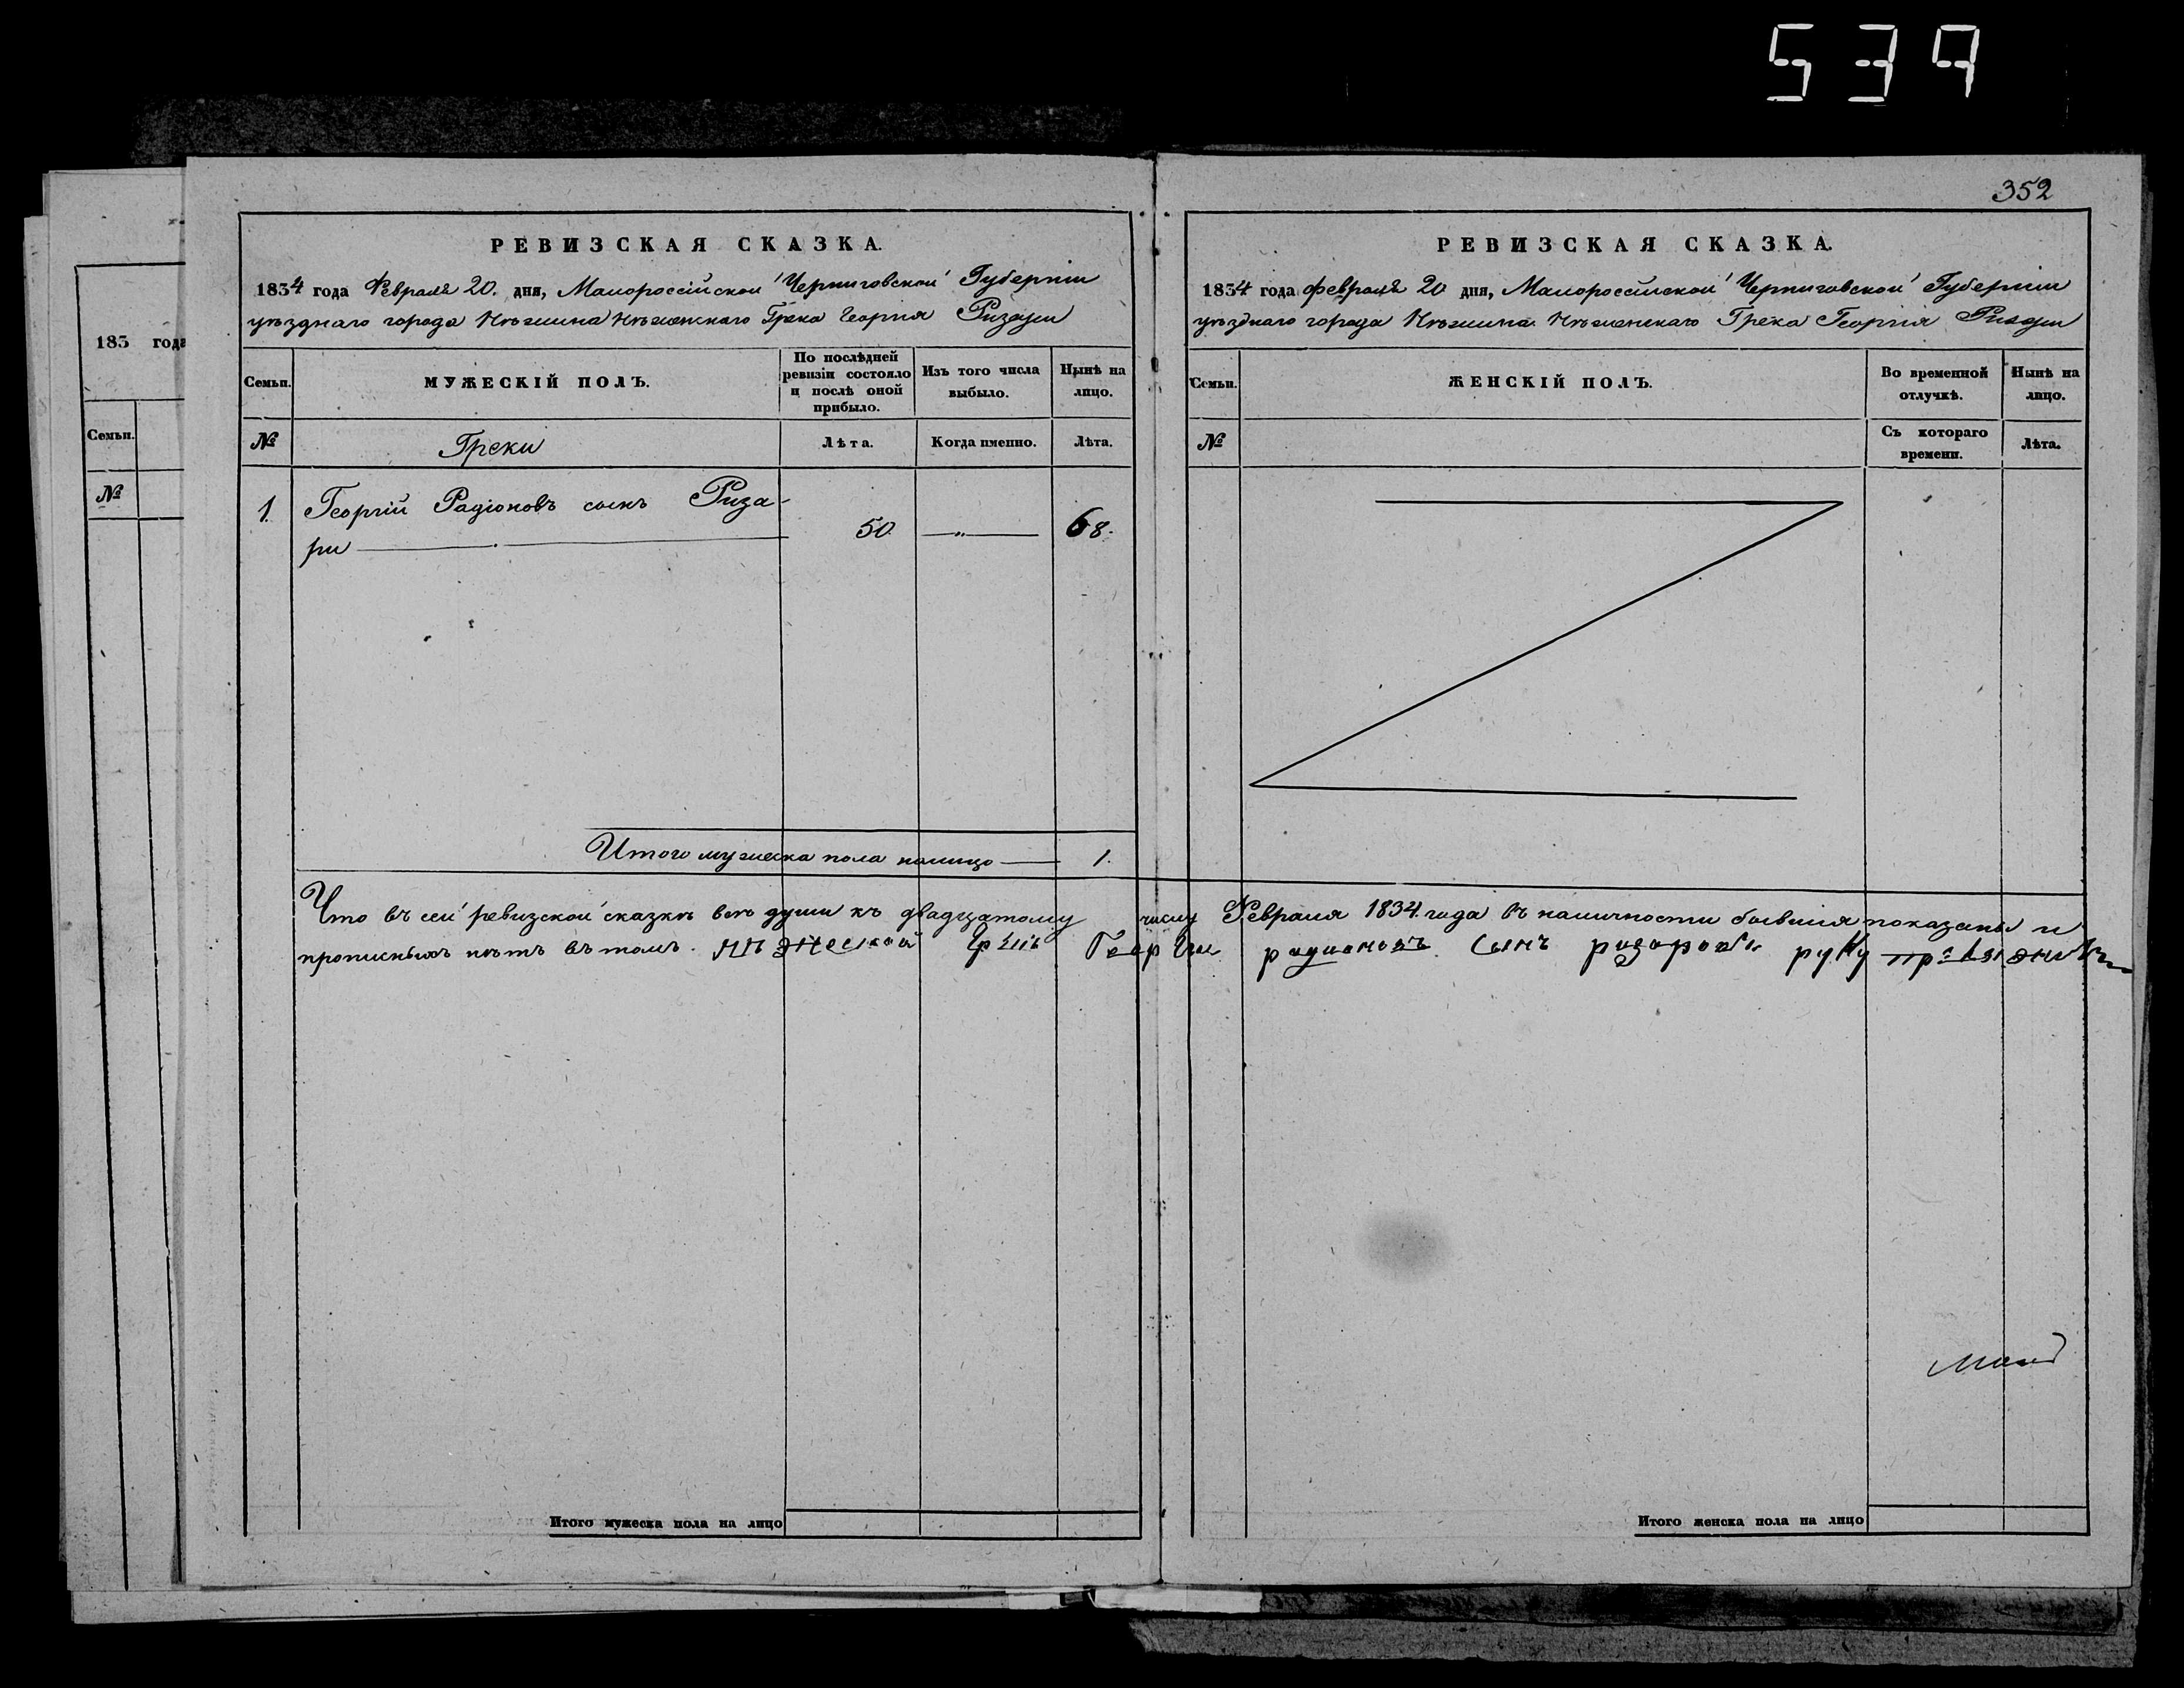 539
352
183 года
Семьи.
№
РЕВИЗСКАЯ СКАЗКА.
1834 года Февраля 20. дня, Малороссійской Черниговской Губерніи
уѣзднаго города Нѣжина Нѣженскаго Грека Георгия Ризари
Семьи. МУЖЕСКІЙ ПОЛЪ. По послѣдней ревизіи состояло и послѣ оной прибыло. Изъ того числа выбыло. Нынѣ на лицо.
№ Греки Лѣта. Когда именно. Лѣта.
1. Георгій Радіоновъ сынъ Риза-
ри 50. — „ — 68.
Итого мужеска пола налицо — 1.
РЕВИЗСКАЯ СКАЗКА.
1834 года февраля 20 дня, Малороссійской Черниговской Губерніи
уѣзднаго города Нѣжина Нѣженскаго Грека Георгия Ризари
Семьи. ЖЕНСКІЙ ПОЛЪ. Во временной отлучкѣ. Нынѣ на лицо.
№ Съ котораго времени. Лѣта.
Что въ сей ревизской сказкѣ всѣ души къ двадцатому числу Февраля 1834 года въ наличности бывшія показаны и
прописныхъ нѣтъ въ томъ. сынъ руку
Итого мужеска пола на лицо
Итого женска пола на лицо